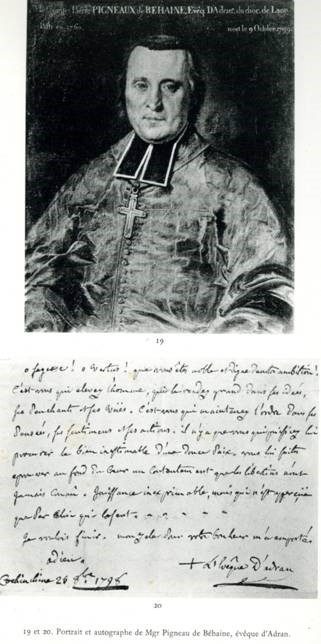 Georges Pierre PIGNEAUX de BEHAINE, Evêq. D'Adran. du dioc. de Laon
mort le 9 Octobre 1799.
19
o sagesse! o vertus! que vous êtes noble et digne d'autre ambition!
C'est vous qui élevez l'homme, qui le rendez grand dans ses idées,
ses Penchants et ses Vües. C'est vous qui maintenez l'ordre dans ses
Pensées, ses sentiments et ses actions. il n'y a que vous qui puissiez lui
procurer le bien inestimable d'une douce Paix, vous lui faites
éprouver au fond du Cœur un Contentement que les libertins n'ont
jamais Connu. Jouissance inexprimable, mais qui n'est apperçue
que Par Celui qui la sent. - - - - -
Je voulois finir. mon zele Pour votre bonheur m'a emporté
adieu.
+ L'Evêque D'adran
Cochinchine 26 8bre 1798
20
19 et 20. Portrait et autographe de Mgr Pigneau de Béhaine, évêque d'Adran.